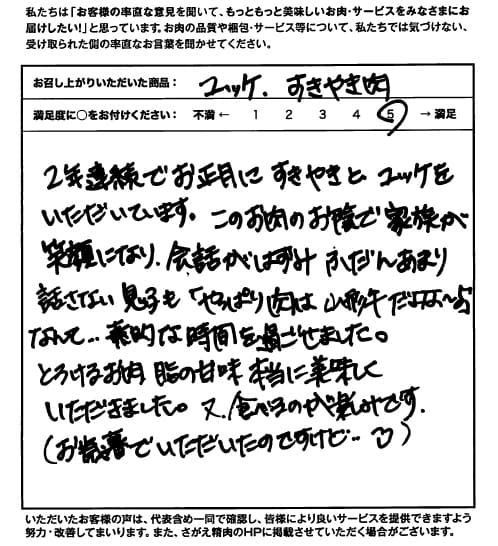 私たちは「お客様の率直な意見を聞いて、もっともっと美味しいお肉・サービスをみなさまにお
届けしたい!」と思っています。お肉の品質や梱包・サービス等について、私たちでは気づけない、
受け取られた側の率直なお言葉を聞かせてください。
お召し上がりいただいた商品： ユッケ、すきやき肉
満足度に○をお付けください： 不満 ← 1 2 3 4 5 → 満足
2年連続でお正月に すきやきと ユッケを
いただいています。このお肉のお陰で 家族が
笑顔になり、会話がはずみ ふだんあまり
話さない 息子も「やっぱり肉は 山形牛だよな~」
なんて… 素的な時間を過ごせました。
とろけるお肉 脂の甘味 本当に美味しく
いただきました。又、食べるのが楽しみです。
(お歳暮でいただいたのですけど…)
いただいたお客様の声は、代表含め一同で確認し、皆様により良いサービスを提供できますよう
努力・改善してまいります。また、さがえ精肉のHPに掲載させていただく場合がございます。